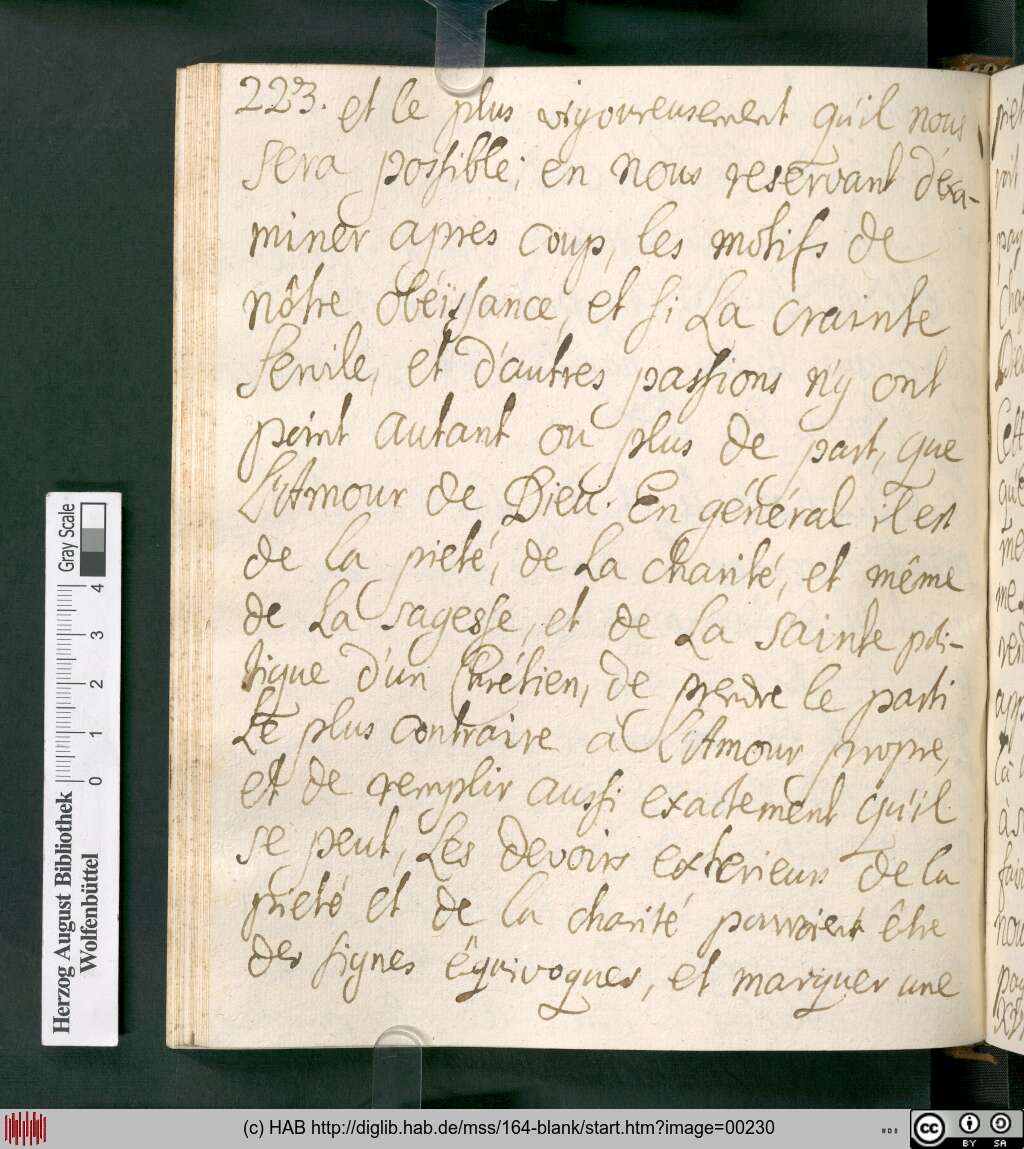 223. et le plus vigoureusement qu'il nous
sera possible; en nous reservant d'exa-
miner apres coup, les motifs de
nôtre obéissance, et si la crainte
servile, et d'autres passions n'y ont
point autant ou plus de part, que
l'Amour de Dieu. En général il est
de la pieté, de la charité, et même
de la sagesse, et de la sainte poli-
tique d'un Chrétien, de prendre le parti
le plus contraire à l'Amour propre,
et de remplir aussi exactement qu'il
se peut, les devoirs exterieurs de la
pieté et de la charité pourroient être
des signes équivoques, et marquer une
Herzog August Bibliothek
Wolfenbüttel
Gray Scale
0 1 2 3 4
(c) HAB http://diglib.hab.de/mss/164-blank/start.htm?image=00230
cc BY SA